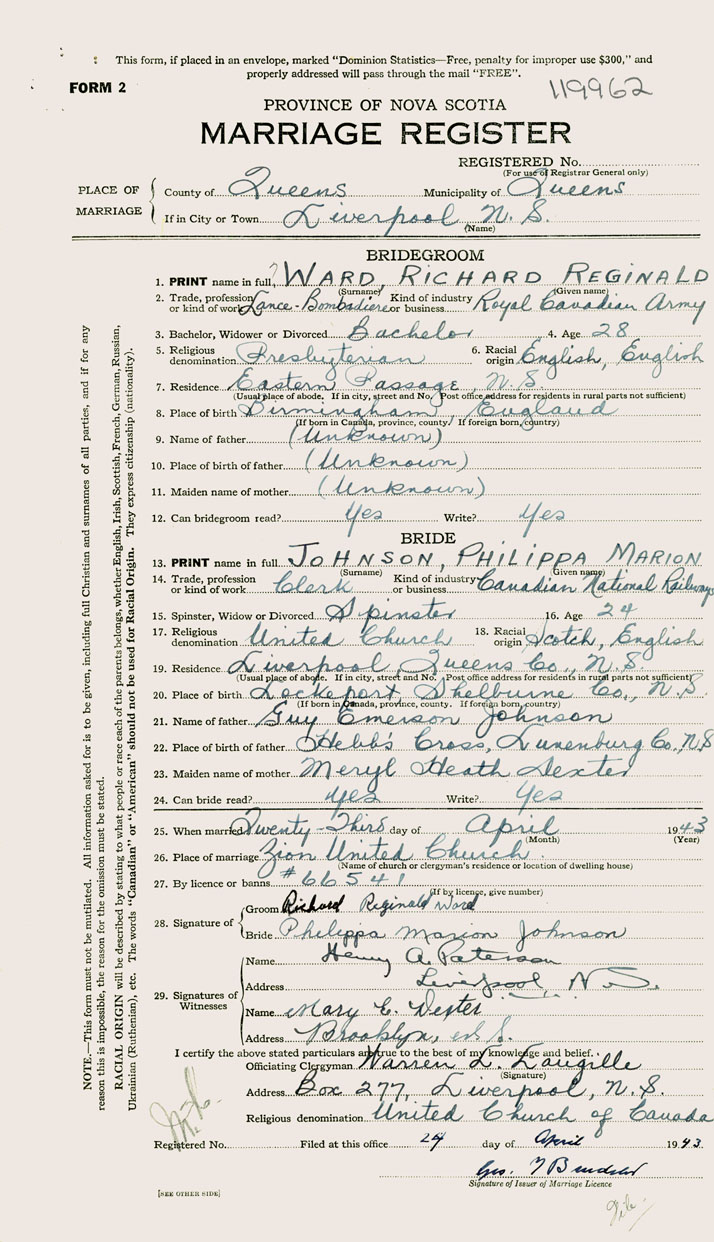 This form, if placed in an envelope, marked "Dominion Statistics—Free, penalty for improper use $300," and
properly addressed will pass through the mail "FREE".
FORM 2
119962
PROVINCE OF NOVA SCOTIA
MARRIAGE REGISTER
REGISTERED No.
(For use of Registrar General only)
PLACE OF MARRIAGE
County of Queens Municipality of Queens
If in City or Town Liverpool N. S.
(Name)
BRIDEGROOM
1. PRINT name in full, WARD, RICHARD REGINALD
(Surname) (Given name)
2. Trade, profession or kind of work Lance-Bombadiere Kind of industry or business Royal Canadian Army
3. Bachelor, Widower or Divorced Bachelor 4. Age 28
5. Religious denomination Presbyterian 6. Racial origin English, English
7. Residence Eastern Passage, N. S.
(Usual place of abode. If in city, street and No. Post office address for residents in rural parts not sufficient)
8. Place of birth Birmingham, England
(If born in Canada, province, county. If foreign born, country)
9. Name of father (Unknown)
10. Place of birth of father (Unknown)
11. Maiden name of mother (Unknown)
12. Can bridegroom read? Yes Write? Yes
BRIDE
13. PRINT name in full JOHNSON, PHILIPPA MARION
(Surname) (Given name)
14. Trade, profession or kind of work Clerk Kind of industry or business Canadian National Railways
15. Spinster, Widow or Divorced Spinster 16. Age 24
17. Religious denomination United Church 18. Racial origin Scotch, English
19. Residence Liverpool Queens Co., N. S.
(Usual place of abode. If in city, street and No. Post office address for residents in rural parts not sufficient)
20. Place of birth Lockeport Shelburne Co., N. S.
(If born in Canada, province, county. If foreign born, country)
21. Name of father Guy Emerson Johnson
22. Place of birth of father Hebb's Cross, Lunenburg Co., N. S
23. Maiden name of mother Meryl Heath Dexter
24. Can bride read? yes Write? Yes
25. When married Twenty-Third day of April 1943
(Month) (Year)
26. Place of marriage Zion United Church.
(Name of church or clergyman's residence or location of dwelling house)
27. By licence or banns #66541
(If by licence, give number)
28. Signature of
Groom Richard Reginald Ward
Bride Philippa Marion Johnson
29. Signatures of Witnesses
Name Henry A. Paterson
Address Liverpool N.S.
Name Mary E. Dexter
Address Brooklyn, N. S.
I certify the above stated particulars are true to the best of my knowledge and belief.
Officiating Clergyman Warren L. Langille
(Signature)
Address Box 277, Liverpool, N. S.
Religious denomination United Church of Canada
Registered No. Filed at this office 24 day of April 1943.
Geo.
Signature of Issuer of Marriage Licence
[SEE OTHER SIDE]
NOTE.—This form must not be mutilated. All information asked for is to be given, including full Christian and surnames of all parties, and if for any
reason this is impossible, the reason for the omission must be stated.
RACIAL ORIGIN will be described by stating to what people or race each of the parents belongs, whether English, Irish, Scottish, French, German, Russian,
Ukrainian (Ruthenian), etc. The words "Canadian" or "American" should not be used for Racial Origin. They express citizenship (nationality).